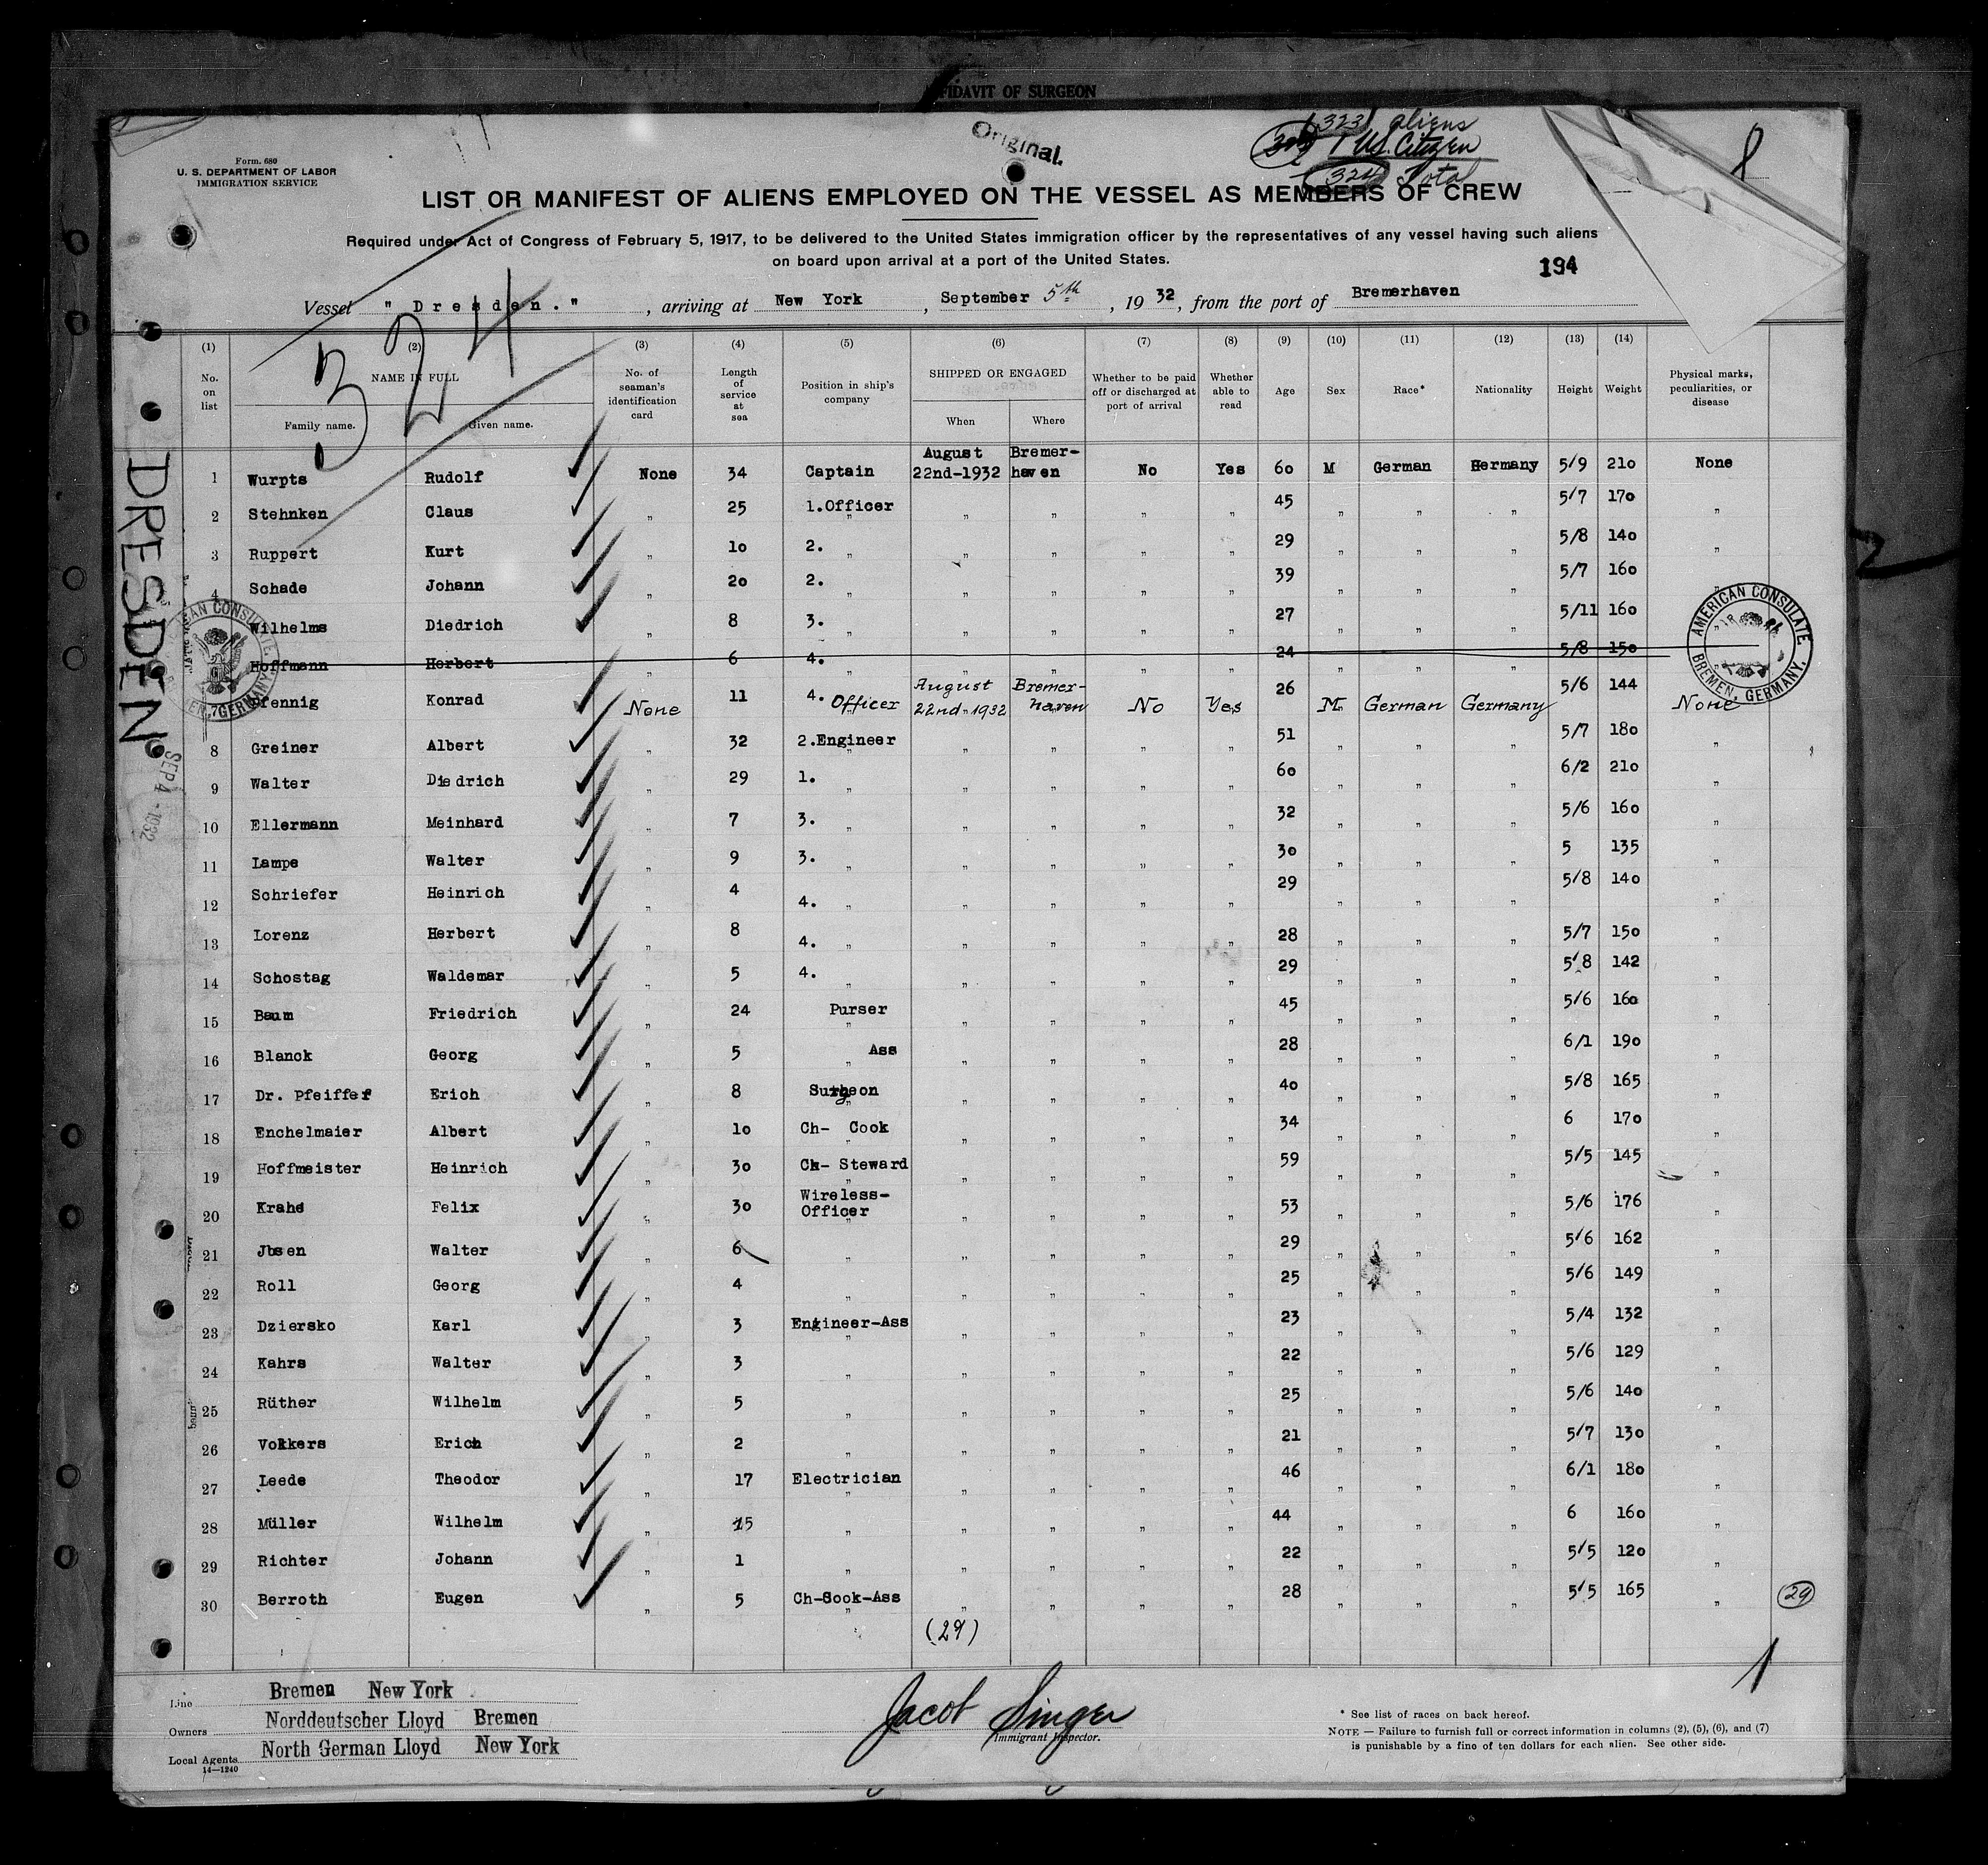 AFFIDAVIT OF SURGEON
Original.
323 aliens
1 U.S. Citizen
324 Total
8
Form. 680
U. S. DEPARTMENT OF LABOR
IMMIGRATION SERVICE
LIST OR MANIFEST OF ALIENS EMPLOYED ON THE VESSEL AS MEMBERS OF CREW
Required under Act of Congress of February 5, 1917, to be delivered to the United States immigration officer by the representatives of any vessel having such aliens
on board upon arrival at a port of the United States.
194
Vessel " Dresden. " , arriving at New York , September 5th , 1932, from the port of Bremerhaven
324
(1) (2) (3) (4) (5) (6) (7) (8) (9) (10) (11) (12) (13) (14)
No. on list
NAME IN FULL
Family name. Given name.
No. of seaman's identification card
Length of service at sea
Position in ship's company
SHIPPED OR ENGAGED
When Where
Whether to be paid off or discharged at port of arrival
Whether able to read
Age
Sex
Race*
Nationality
Height
Weight
Physical marks, peculiarities, or disease
1 Wurpts Rudolf None 34 Captain August 22nd-1932 Bremer-haven No Yes 60 M German Germany 5/9 210 None
2 Stehnken Claus " 25 1.Officer " " " " 45 " " " 5/7 170 "
3 Ruppert Kurt " 10 2. " " " " " 29 " " " 5/8 140 "
4 Schade Johann " 20 2. " " " " " 39 " " " 5/7 160 "
Wilhelms Diedrich " 8 3. " " " " " 27 " " " 5/11 160
Hoffmann Herbert " 6 4. " " " " " 24 " " " 5/8 150
7 Pfennig Konrad None 11 4. Officer August 22nd-1932 Bremer-haven No Yes 26 M. German Germany 5/6 144 None
8 Greiner Albert " 32 2.Engineer " " " " 51 " " " 5/7 180 "
9 Walter Diedrich " 29 1. " " " " " 60 " " " 6/2 210 "
10 Ellermann Meinhard " 7 3. " " " " " 32 " " " 5/6 160 "
11 Lampe Walter " 9 3. " " " " " 30 " " " 5 135 "
12 Schriefer Heinrich " 4 4. " " " " " 29 " " " 5/8 140 "
13 Lorenz Herbert " 8 4. " " " " " 28 " " " 5/7 150 "
14 Schostag Waldemar " 5 4. " " " " " 29 " " " 5/8 142 "
15 Baum Friedrich " 24 Purser " " " " 45 " " " 5/6 160 "
16 Blanck Georg " 5 " Ass " " " " 28 " " " 6/1 190 "
17 Dr. Pfeiffer Erich " 8 Surgeon " " " " 40 " " " 5/8 165 "
18 Enchelmaier Albert " 10 Ch- Cook " " " " 34 " " " 6 170 "
19 Hoffmeister Heinrich " 30 Ch- Steward " " " " 59 " " " 5/5 145 "
20 Krahé Felix " 30 Wireless-Officer " " " " 53 " " " 5/6 176 "
21 Jbsen Walter " 6 " " " " " 29 " " " 5/6 162 "
22 Roll Georg " 4 " " " " " 25 " " " 5/6 149 "
23 Dziersko Karl " 3 Engineer-Ass " " " " 23 " " " 5/4 132 "
24 Kahrs Walter " 3 " " " " " 22 " " " 5/6 129 "
25 Rüther Wilhelm " 5 " " " " " 25 " " " 5/6 140 "
26 Volkers Erich " 2 " " " " " 21 " " " 5/7 130 "
27 Leede Theodor " 17 Electrician " " " " 46 " " " 6/1 180 "
28 Müller Wilhelm " 15 " " " " " 44 " " " 6 160 "
29 Richter Johann " 1 " " " " " 22 " " " 5/5 120 "
30 Berroth Eugen " 5 Ch-Cook-Ass " " " " 28 " " " 5/5 165 " 29
(29)
1
DRESDEN
SEP 4 - 1932
AMERICAN CONSULATE.
BREMEN, GERMANY.
AMERICAN CONSULATE.
BREMEN, GERMANY.
Line Bremen New York
Owners Norddeutscher Lloyd Bremen
Local Agents North German Lloyd New York
14—1240
Jacob Singer
Immigrant Inspector.
* See list of races on back hereof.
NOTE — Failure to furnish full or correct information in columns (2), (5), (6), and (7)
is punishable by a fine of ten dollars for each alien. See other side.